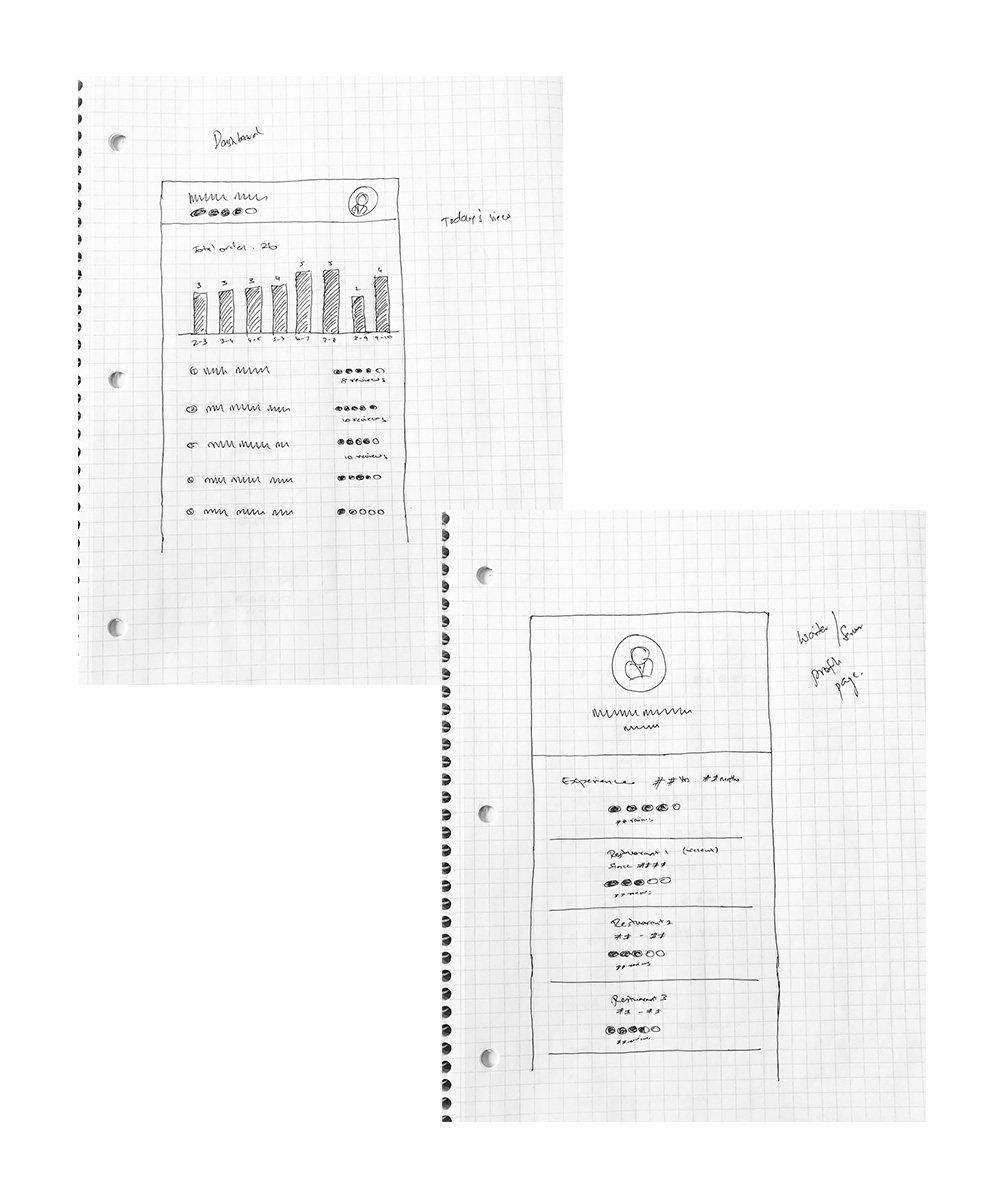 Dashboard
Today's view
Total orders - 26
3 3 3 4 5 5 2 4
2-3 3-4 4-5 5-6 6-7 7-8 8-9 9-10
8 reviews
10 reviews
10 reviews
Waiter / Server
profile
page.
Experience ## Yrs ## months
## reviews
Restaurant 1 (recent)
Since ####
## reviews
Restaurant 2
## - ##
## reviews
Restaurant 3
## - ##
## reviews